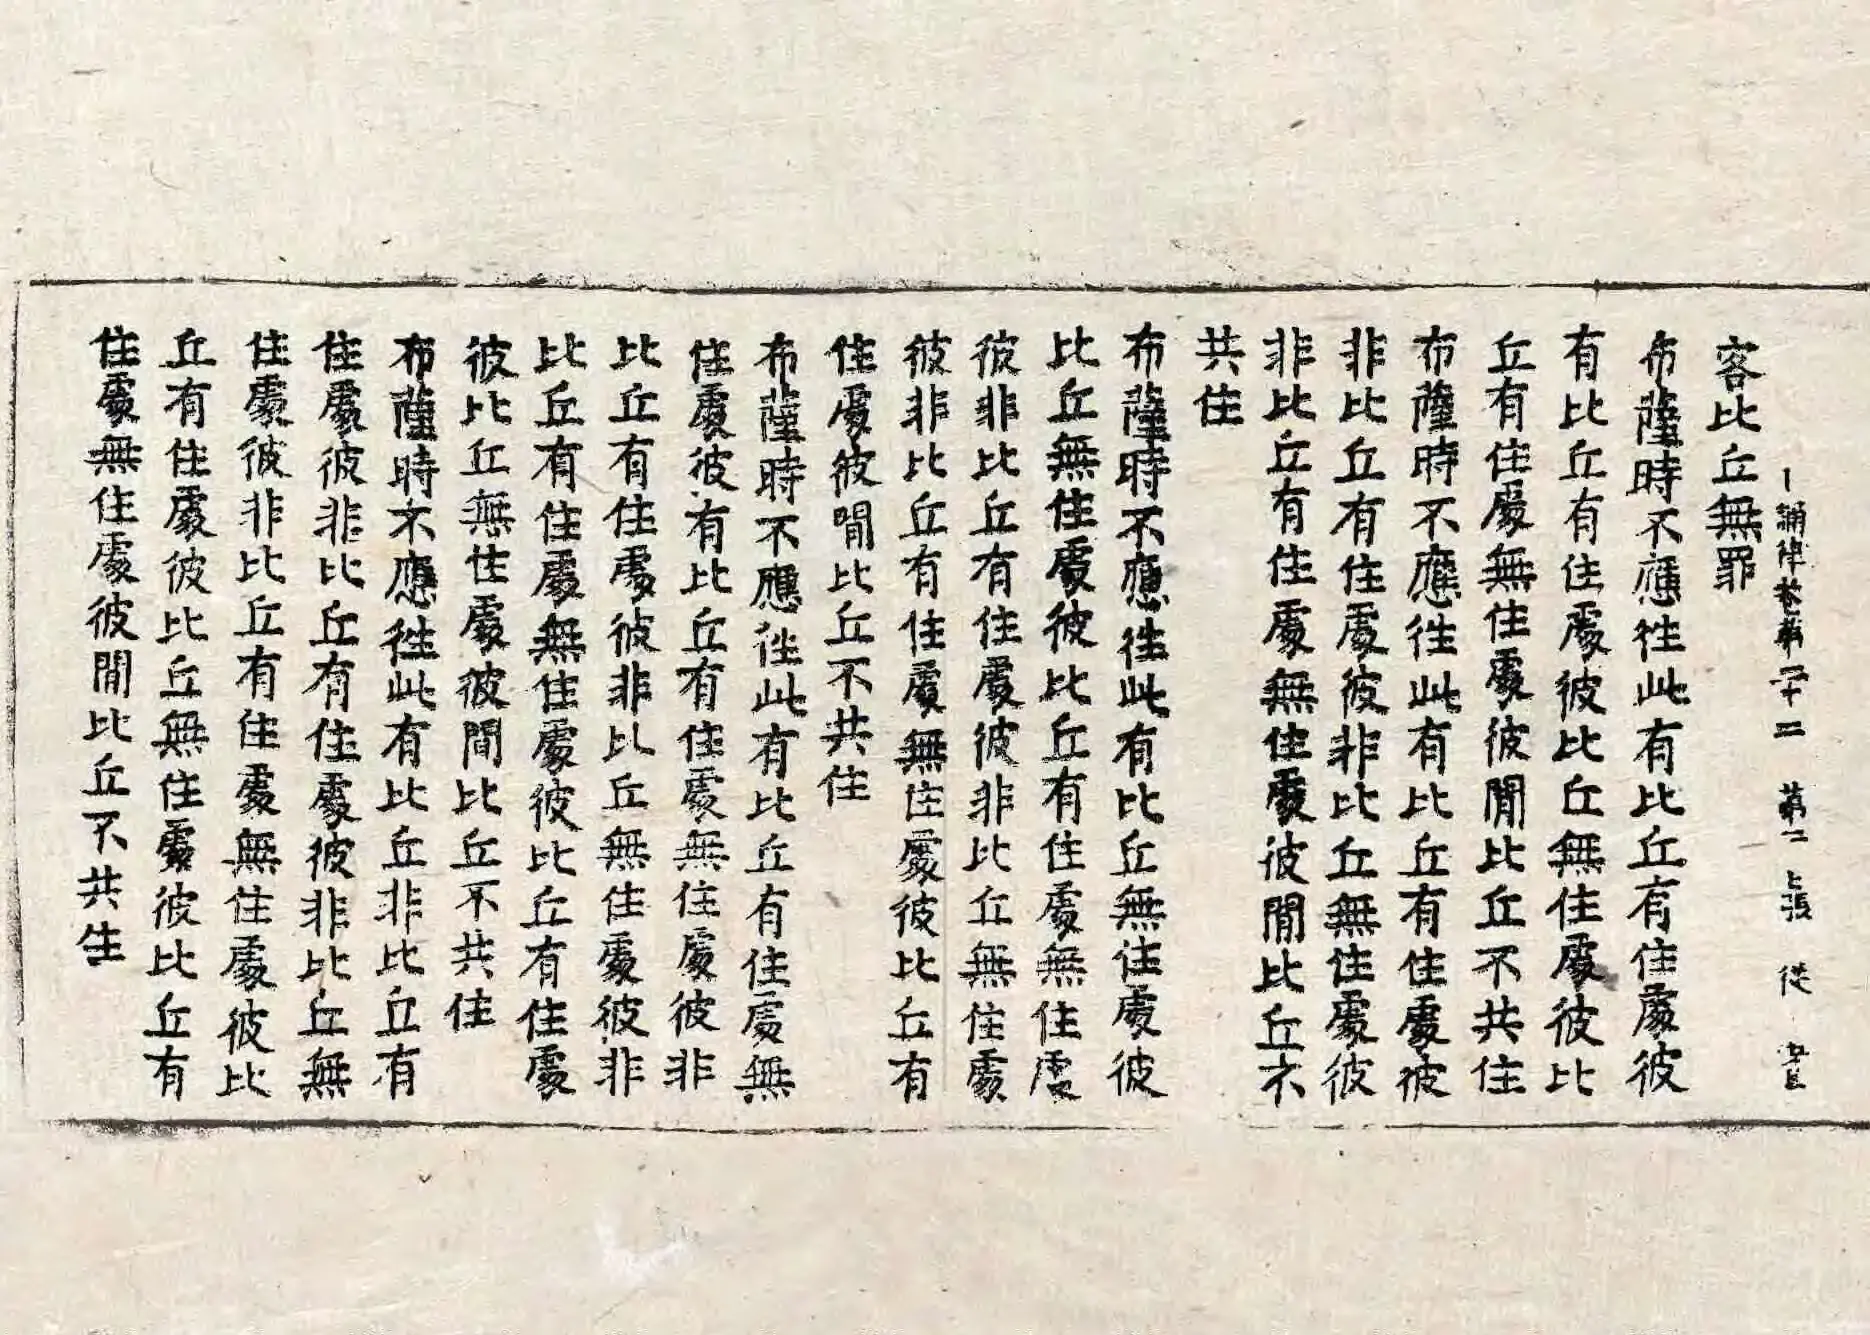 十誦律卷第二十二 第二 張 從
客比丘無罪
布薩時不應往此有比丘有住處彼
有比丘有住處彼比丘無住處彼比
丘有住處無住處彼間比丘不共住
布薩時不應往此有比丘有住處彼
非比丘有住處彼非比丘無住處彼
非比丘有住處無住處彼間比丘不
共住
布薩時不應往此有比丘無住處彼
比丘無住處彼比丘有住處無住處
彼非比丘有住處彼非比丘無住處
彼非比丘有住處無住處彼比丘有
住處彼間比丘不共住
布薩時不應往此有比丘有住處無
住處彼有比丘有住處無住處彼非
比丘有住處彼非比丘無住處彼非
比丘有住處無住處彼比丘有住處
彼比丘無住處彼間比丘不共住
布薩時不應往此有比丘非比丘有
住處彼非比丘有住處彼非比丘無
住處彼非比丘有住處無住處彼比
丘有住處彼比丘無住處彼比丘有
住處無住處彼間比丘不共住